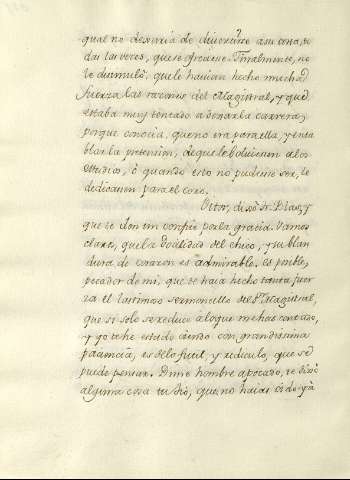 qual no dexaria de divertirse a su costa, to
das las veces, que se ofreciese. Finalmente, no
le disimuló, que le havian hecho mucha
fuerza las razones del Magistral, y que
estaba muy tentado a dexar la carrera,
porque conocia, que no era para ella, y enta
blar la pretension, de que le bolviesen a los
estudios, ò quando esto no pudiese ser, le
dedicasen para el coro.
Vitor, dixo Fr. Blas, y
que te den un confite por la gracia. Vamos
claros, que la docilidad del chico, y su blan
dura de corazon es admirable. Es posible,
pecador de mi, que te haia hecho tanta fuer
za el lastimoso sermoncillo del Sr. Magistral,
que si solo se reduce a lo que me has contado,
y yo te he estado oiendo con grandissima
paciencia, es de lo futil, y ridiculo, que se
puede pensar. Dime hombre apocado, te dixo
alguna cosa tu tio, que no haias oido ya